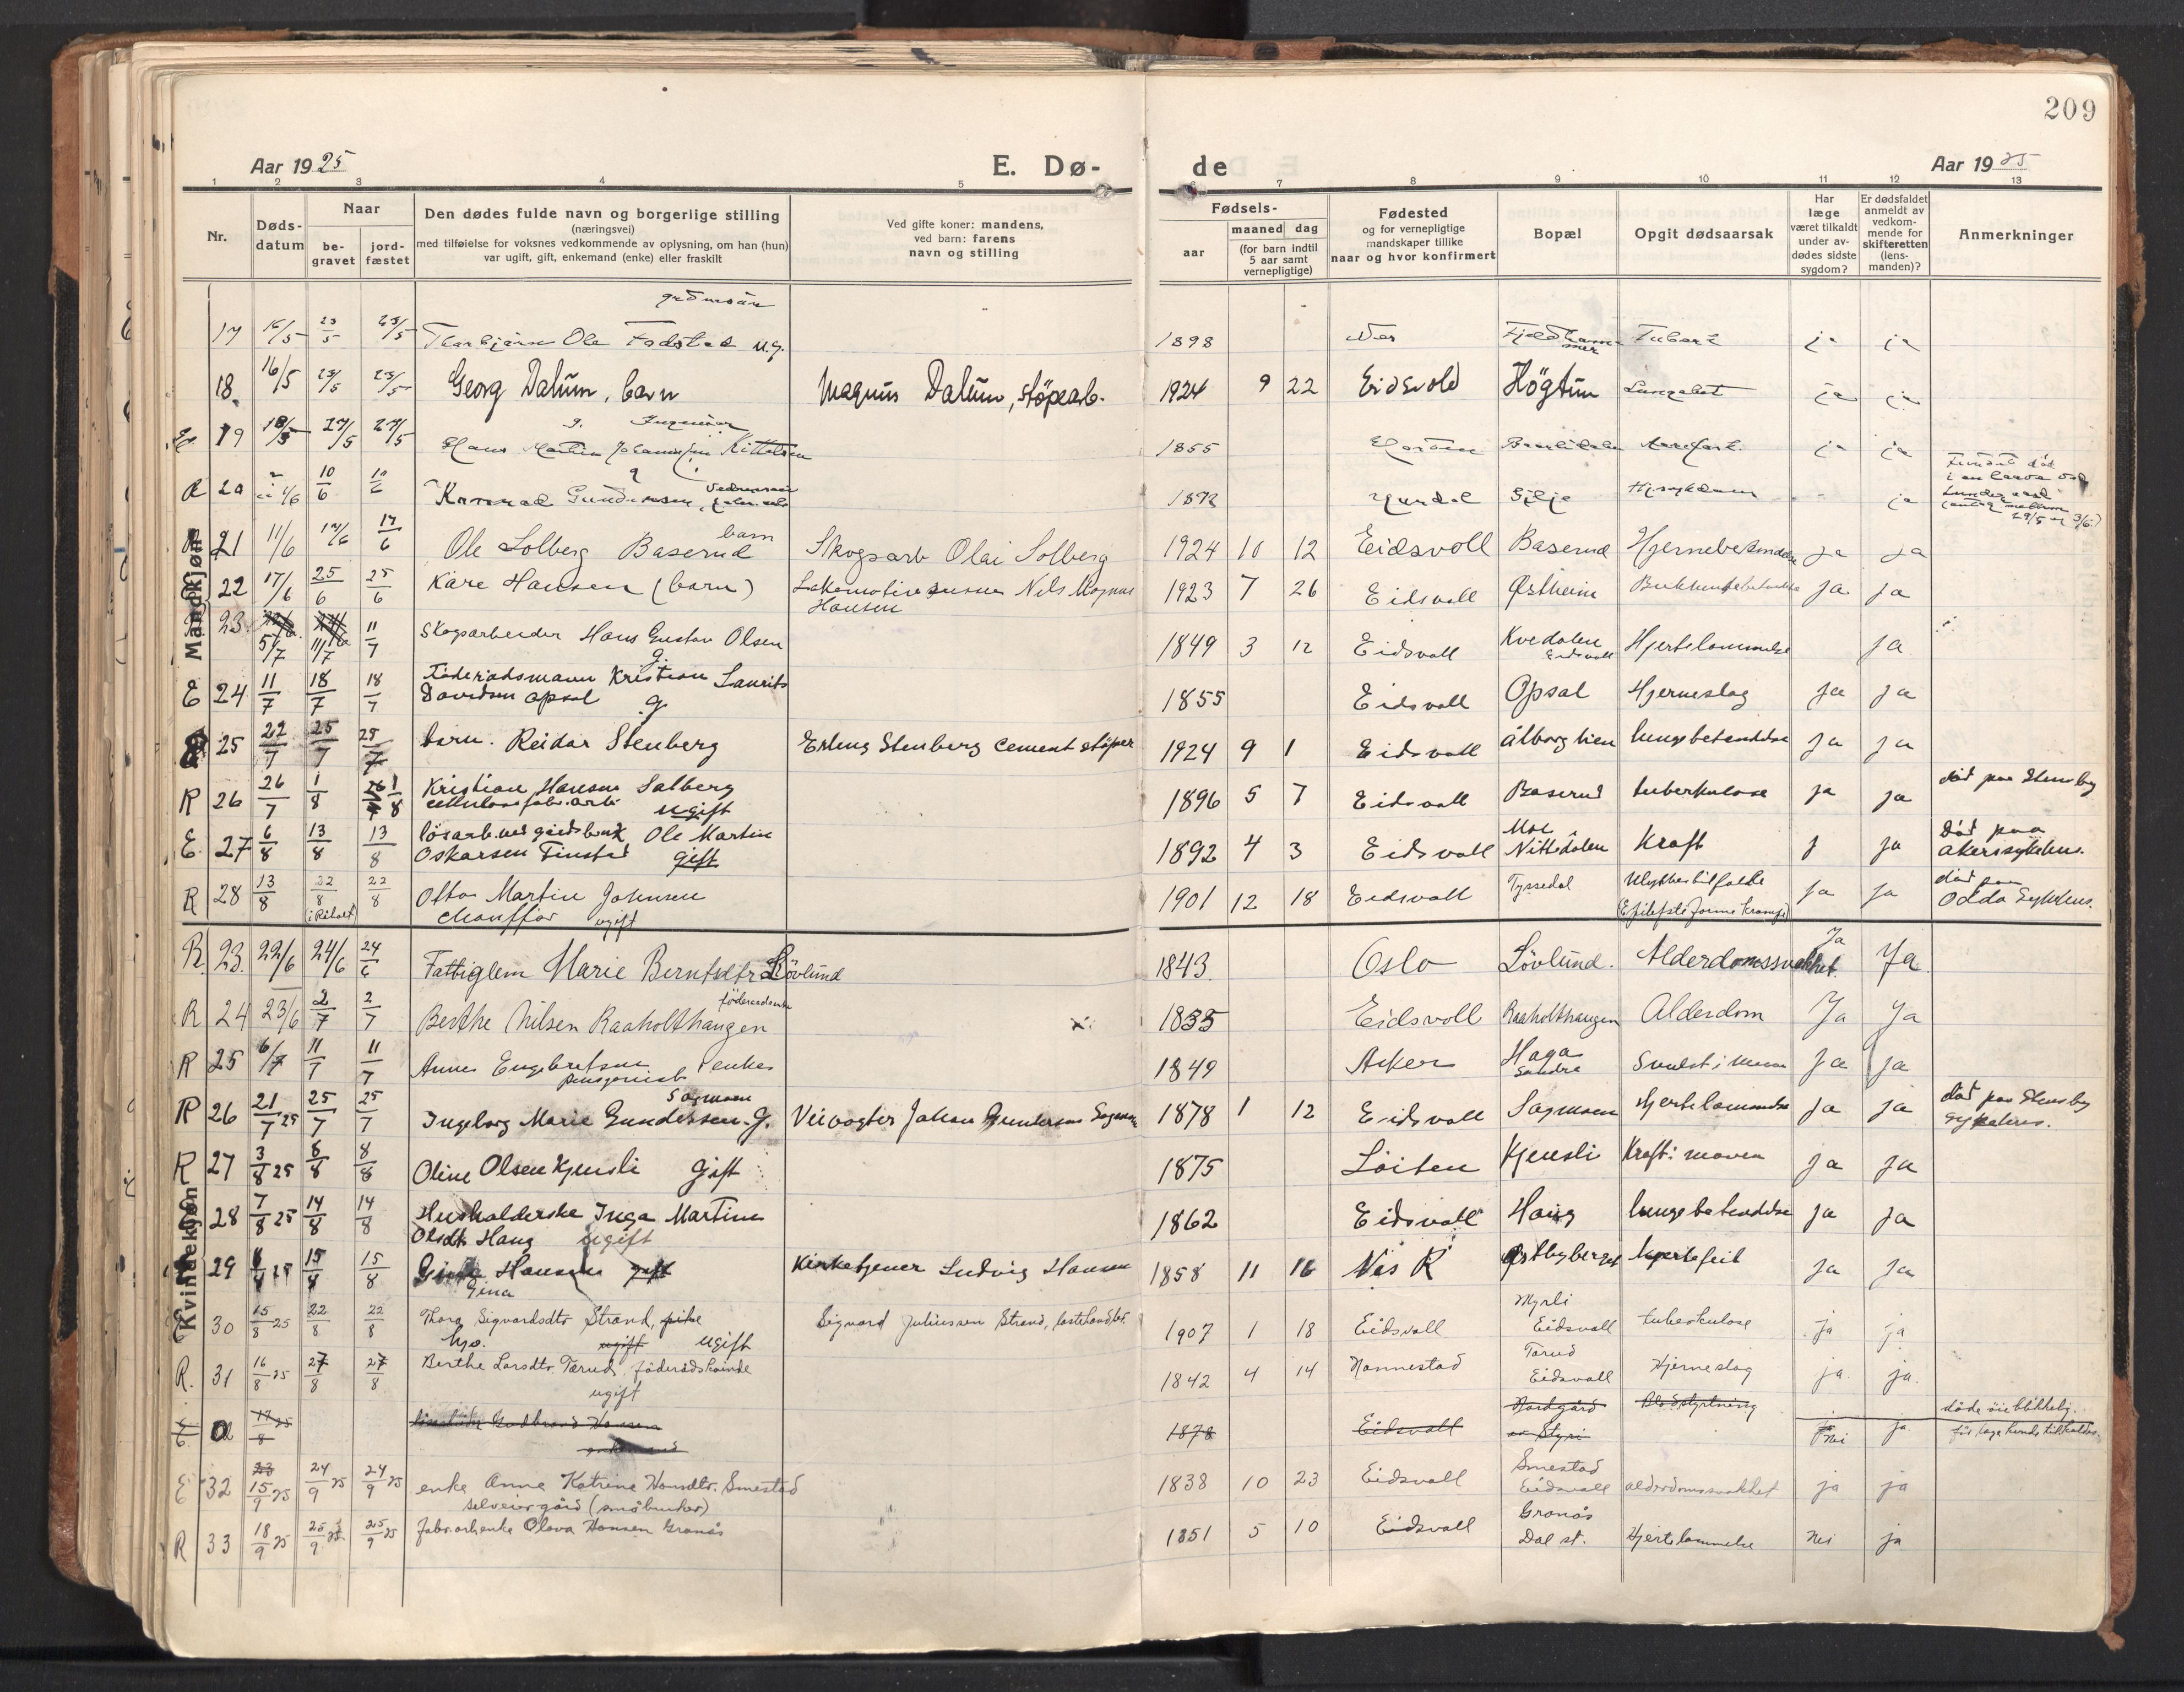 209
Aar 1925
E. Dø-
de
Aar 1925
1 2 3 4 5 6 7 8 9 10 11 12 13
Nr.
Døds-
datum
Naar
be-
gravet
jord-
fæstet
Den dødes fulde navn og borgerlige stilling
(næringsvei)
med tilføielse for voksnes vedkommende av oplysning, om han (hun)
var ugift, gift, enkemand (enke) eller fraskilt
Ved gifte koner: mandens,
ved barn: farens
navn og stilling
Fødsels-
aar
maaned dag
(for barn indtil
5 aar samt
vernepligtige)
Fødested
og for vernepligtige
mandskaper tillike
naar og hvor konfirmert
Bopæl
Opgit dødsaarsak
Har
læge
været tilkaldt
under av-
dødes sidste
sygdom?
Er dødsfaldet
anmeldt av
vedkom-
mende for
skifteretten
(lens-
manden)?
Anmerkninger
Mandkjøn
17 16/5 23/5 23/5 Thorbjørn Ole Fodstad u.g. 1898 Nes Fjeldhammer Tuberk ja ja
18. 16/5 23/5 23/5 Georg Dalum, barn Magnus Dalum, støpearb. 1924 9 22 Eidsvold Høgtun Lungebet ja ja
19 18/5 27/5 27/5 g. Ingeniør
Hans Martin Johannes Kittelsen 1855 Horten ja ja
20 10/6 10/6 Konrad Gundersen 1872 Hurdal Gilje Hj.sykdom ja
21 11/6 17/6 17/6 Ole Solberg Baserud barn Skogsarb Olai Solberg 1924 10 12 Eidsvoll Baserud Hjernebetendelse ja ja
22 17/6 25/6 25/6 Kåre Hansen (barn) Lokomotivpusser Nils Magnus
Hansen 1923 7 26 Eidsvall Østheim ja ja
23. 5/7 11/7 11/7 Skogsarbeider Hans Gustav Olsen
g. 1849 3 12 Eidsvall Kvedalen
Eidsvall Hjertelammelse ja
E 24 11/7 18/7 18/7 Föderådsmann Kristian Laurits
Davidsen Opsal g. 1855 Eidsvall Opsal Hjerneslag ja ja
25 22/7 25/7 25/7 barn. Reidar Stenberg Erling Stenberg cementstøper 1924 9 1 Eidsvall Ålborglien lungebetendelse ja ja
R 26 26/7 1/8 1/8 Kristian Hansen Solberg
cellulosefabr.arb. ugift 1896 5 7 Eidsvall Baserud tuberkulose ja ja død paa Stensby
E. 27 6/8 13/8 13/8 løsarb. ved gårdsbruk Ole Martin
Oskarsen Finstad gift 1892 4 3 Eidsvall Moe
Nittedalen Kraft j ja død paa
Akersykehus.
R 28 13/8 22/8 22/8 Otto Martin Johnsen
(i Råholt) chauffør ugift 1901 12 18 Eidsvall Tyssedal Ulykkestilfælde
ja ja død paa
Odda Sykehus.
Kvindekjøn
R 23. 22/6 24/6 24/6 Fattiglem Marie Berntsdtr Lövlund 1843. Oslo Lövlund. Alderdomssvakhet Ja Ja
R 24 23/6 2/7 2/7 Berthe Nilsen Raaholthaugen föderaadsenke 1835 Eidsvoll Raaholthaugen Alderdom Ja Ja
R 25 6/7 11/7 11/7 Anne Engebretsen enke
pensjonist 1849 Asker Haga
Søndre Svulst i maven ja ja
R 26 21/7 25 25/7 25/7 Sagmoen
Ingeborg Marie Gundersen. g. Veivogter Johan Gundersen Sagmoen 1878 1 12 Eidsvall Sagmoen Hjertelammelse ja ja død paa Stensby
sykehus.
R 27 3/8 25 8/8 8/8 Oline Olsen Kjensli gift 1875 Löiten Kjensli Kræft i maven ja ja
28 7/8 25 14/8 14/8 Husholderske Inga Martine
Olsdtr Haug ugift 1862 Eidsvall Haug lungebetendelse ja ja
29 15/8 15/8 Hansen gift
Gina Kirketjener Ludvig Hansen 1858 11 16 Nes R Østbyberget hjertefeil ja ja
30 15/8 25 22/8 22/8 Thora Sigvardsdtr Strand, pike
hjo. ugift ugift Sigvard Juliussen Strand, 1907 1 18 Eidsvall Myrli
Eidsvall tuberkulose ja ja
R. 31 16/8 25 27/8 27/8 Berthe Larsdtr. Tærud föderådskvinde
ugift 1842 4 14 Nannestad Tærud
Eidsvall Hjerneslag ja. ja.
E 17/8 25 Gudbrand Hansen
enkemand 1878 Eidsvall Nordgård
Styri Blodstyrtning nei ja døde øieblikkelig.
før læge kunde tilkaldes
E 32 15/9 25 24/9 25 24/9 25 enke Anne Katrine Hansdtr. Smestad
selveiergård (småbruker) 1838 10 23 Eidsvall Smestad
Eidsvall alderdomssvakhet ja ja
R 33 18/9 25 25/9 25 25/9 25 fabr.arb.enke Olava Hansen Granås 1851 5 10 Eidsvall Granås
Dal st. Hjertelammelse nei ja